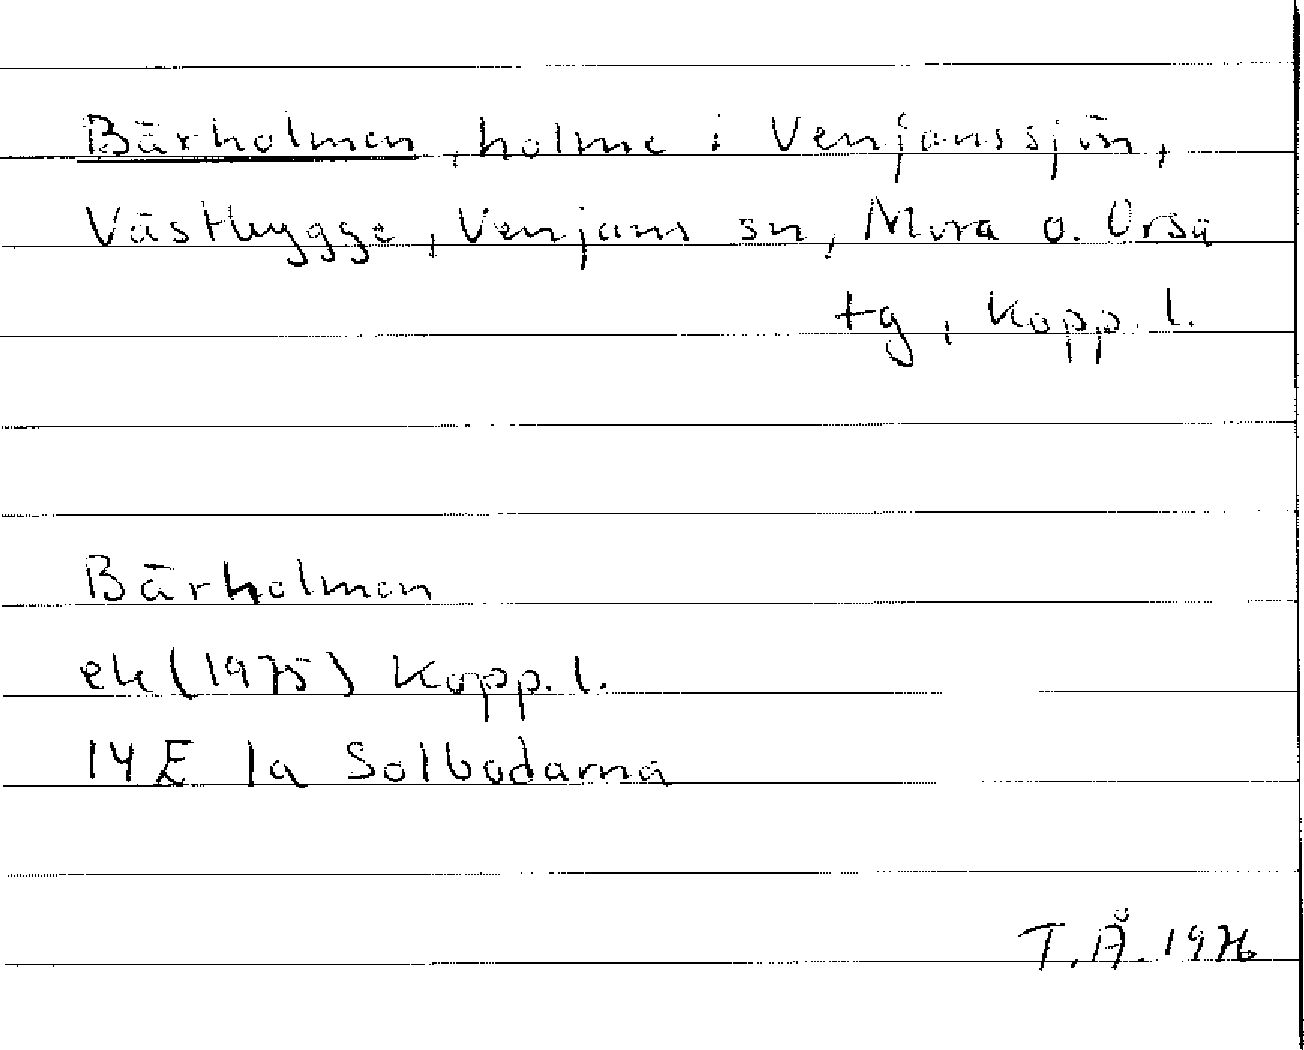 Bärholmen, holme i Venjanssjön,
Västbygge, Venjans sn, Mora o. Orsa
tg, Kopp. l.
Bärholmen
ek (1975) Kopp. l.
14 E 1a Solbodarna
T.Å. 1976